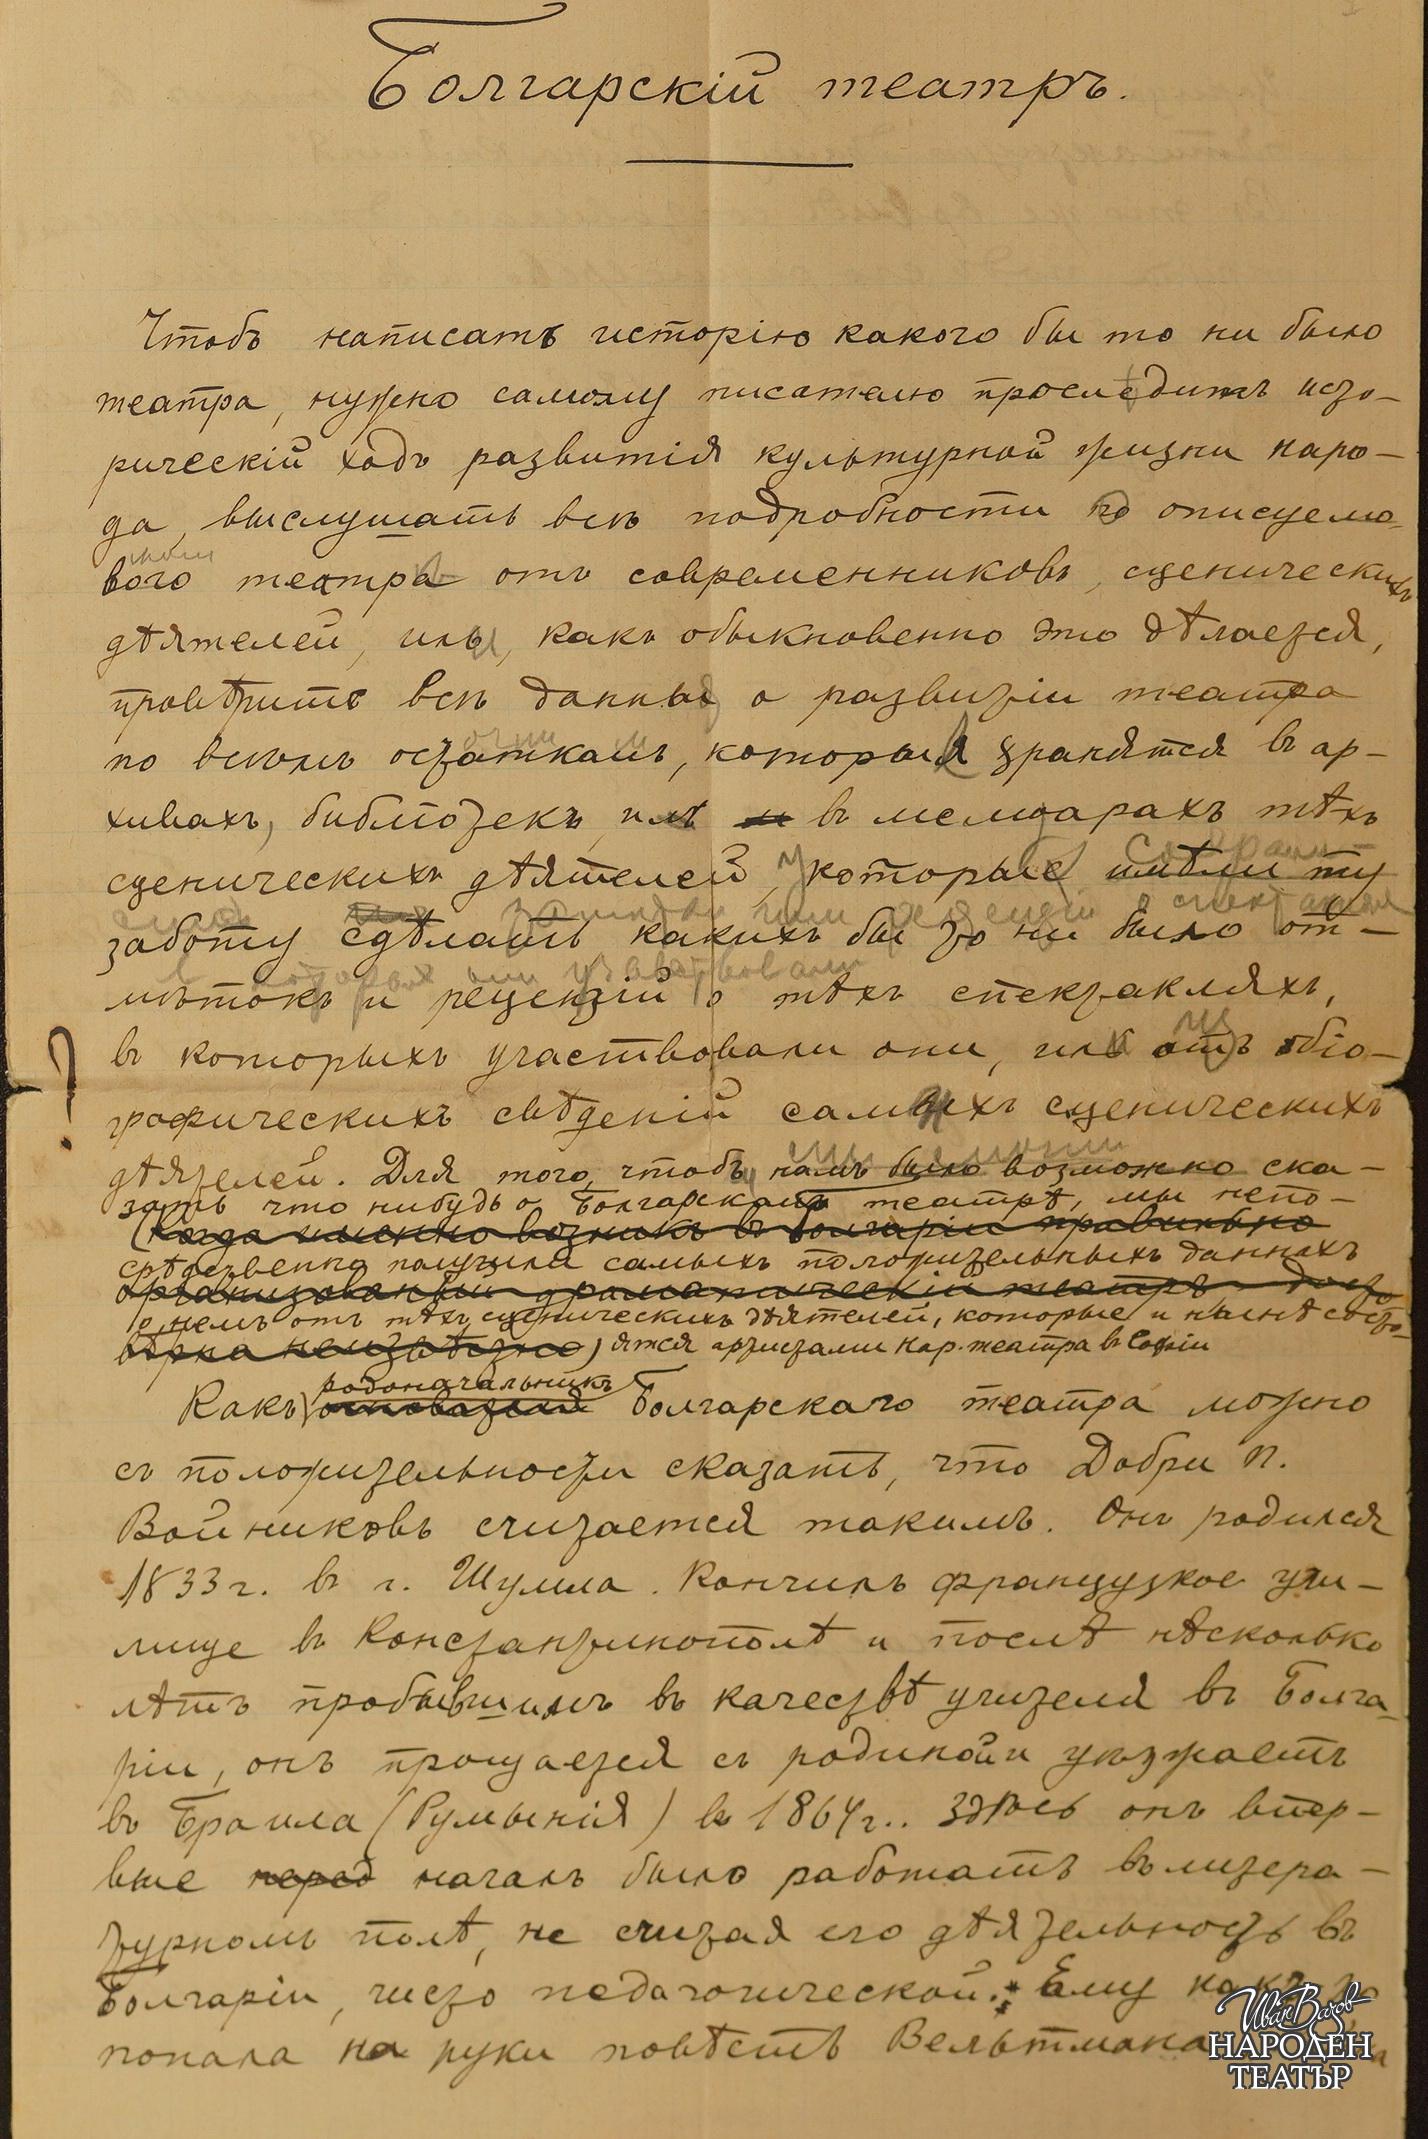 Болгарскій театръ.
Чтобъ написать исторію какого бы то ни было
театра, нужно самому писателю прослѣдить исто-
рическій ходъ развитія культурной жизни наро-
да, выслушать всѣ подробности о описуемо-
вого театра отъ современниковъ, сценическихъ
дѣятелей, или, какъ обыкновенно это дѣлается,
провѣрить всѣ данныя о развитіи театра
по всѣмъ остаткамъ, которыя хранятся въ ар-
хивахъ, библіотекѣ, или въ мемоарахъ тѣхъ
сценическихъ дѣятелей, которые имѣли ту
заботу сдѣлать какихъ бы то ни было от-
мѣтокъ и рецензій о тѣхъ спектакляхъ,
которыхъ они участвовали
въ которыхъ участвовали они, или отъ біо-
?
графическихъ свѣденій самыхъ сценическихъ
дѣятелей. Для того, чтобъ намъ было возможно ска-
зать что нибудь о Болгарскомъ театрѣ, мы непо-
(когда именно возникъ въ Болгаріи правильно
срѣдственно получили самыхъ положительныхъ данныхъ
организованный драматическій театръ - досто
о немъ отъ тѣхъ сценическихъ дѣятелей, которые и нынѣ состо-
вѣрно неизвѣстно) ятся артистами Нар. театра въ Софіи
родоначальникъ
Какъ основателя Болгарскаго театра можно
съ положительности сказать, что Добри П.
Войниковъ считается такимъ. Онъ родился
1833 г. въ г. Шумла. Кончилъ французкое учи-
лище въ Константинополѣ и послѣ нѣсколько
лѣтъ пробывшимъ въ качествѣ учителя въ Болга-
ріи, онъ прощается съ родиной и уѣзжаетъ
въ Браила (Румынія) въ 1864 г.. Здѣсь онъ впер-
вые перед началъ было работать въ литера-
турномъ полѣ, не считая его дѣятельность въ
Болгаріи, чисто педагогической. Ему какъ то
попала на руки повѣсть Вельтмана
Иван Вазов
НАРОДЕН
ТЕАТЪР